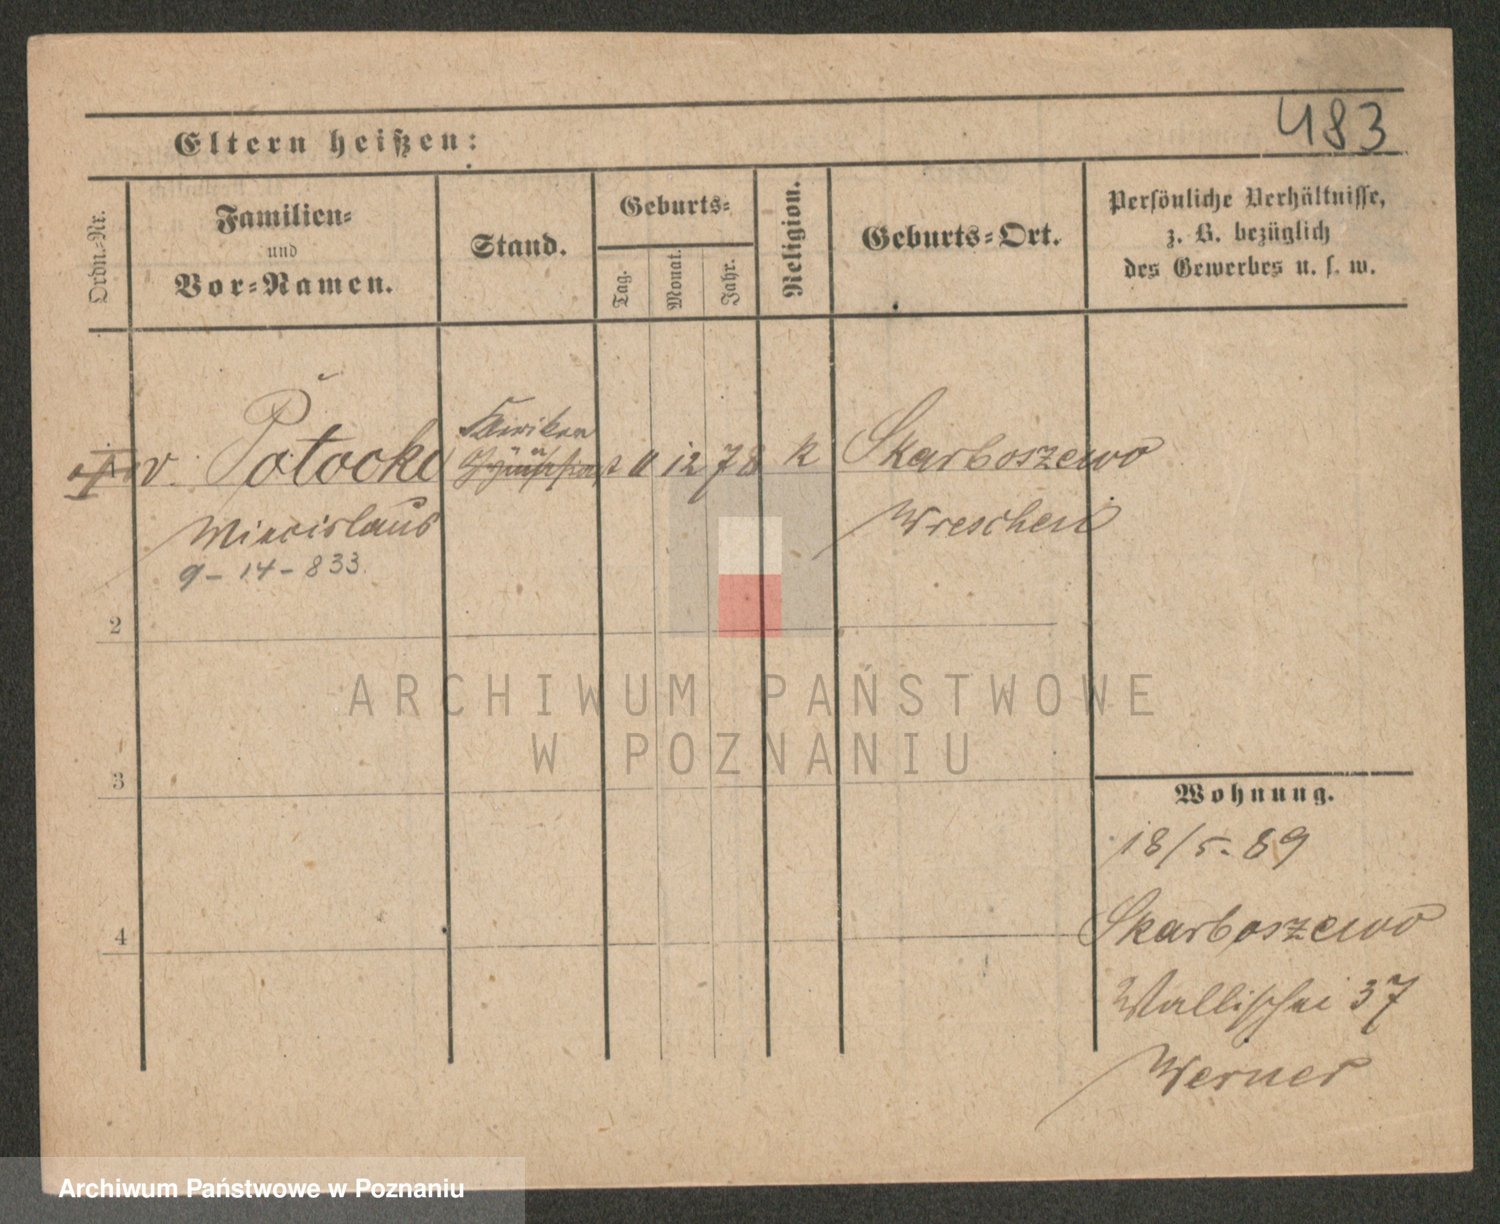 483
Eltern heißen:
Ordn.-Nr.
Familien-
und
Vor-Namen.
Stand.
Geburts-
Tag.
Monat.
Jahr.
Religion.
Geburts-Ort.
Persönliche Verhältnisse,
z. B. bezüglich
des Gewerbes u. s. w.
v. Potocki
12 78 k Skarboszewo
Miecislaus
Wreschen
9-14-833.
2
ARCHIWUM PAŃSTWOWE
W POZNANIU
3
Wohnung.
18/5.89
4
Skarboszewo
Wallischei 37
Werner
Archiwum Państwowe w Poznaniu